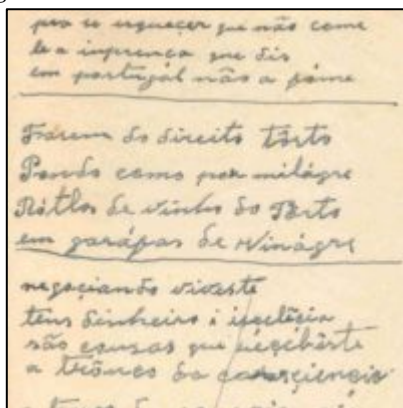 pra se esquecer que não come
le a inprença que dis
em portugál não a fóme
Fázem do direito tôrto
Pondo como por milágre
Rótlos de vinho do Pôrto
em garáfas de vinágre
negociando viveste
tens dinheiro i
são cousas que
a trônco da consciencia